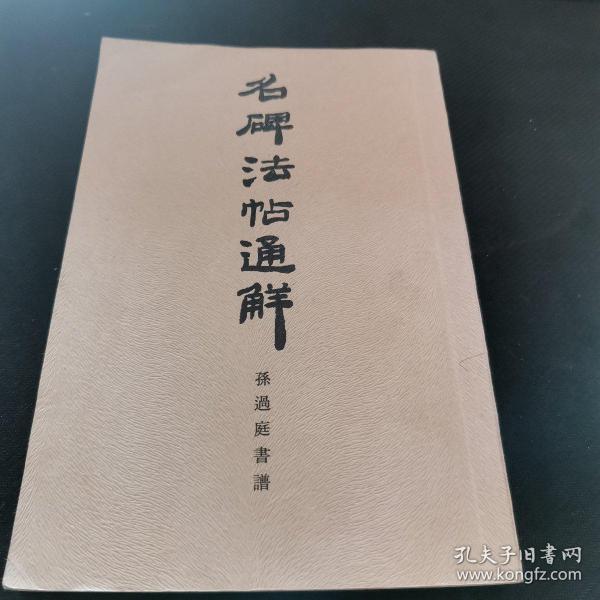 名碑法帖通解
孫過庭書譜
孔夫子旧书网
www.kongfz.com